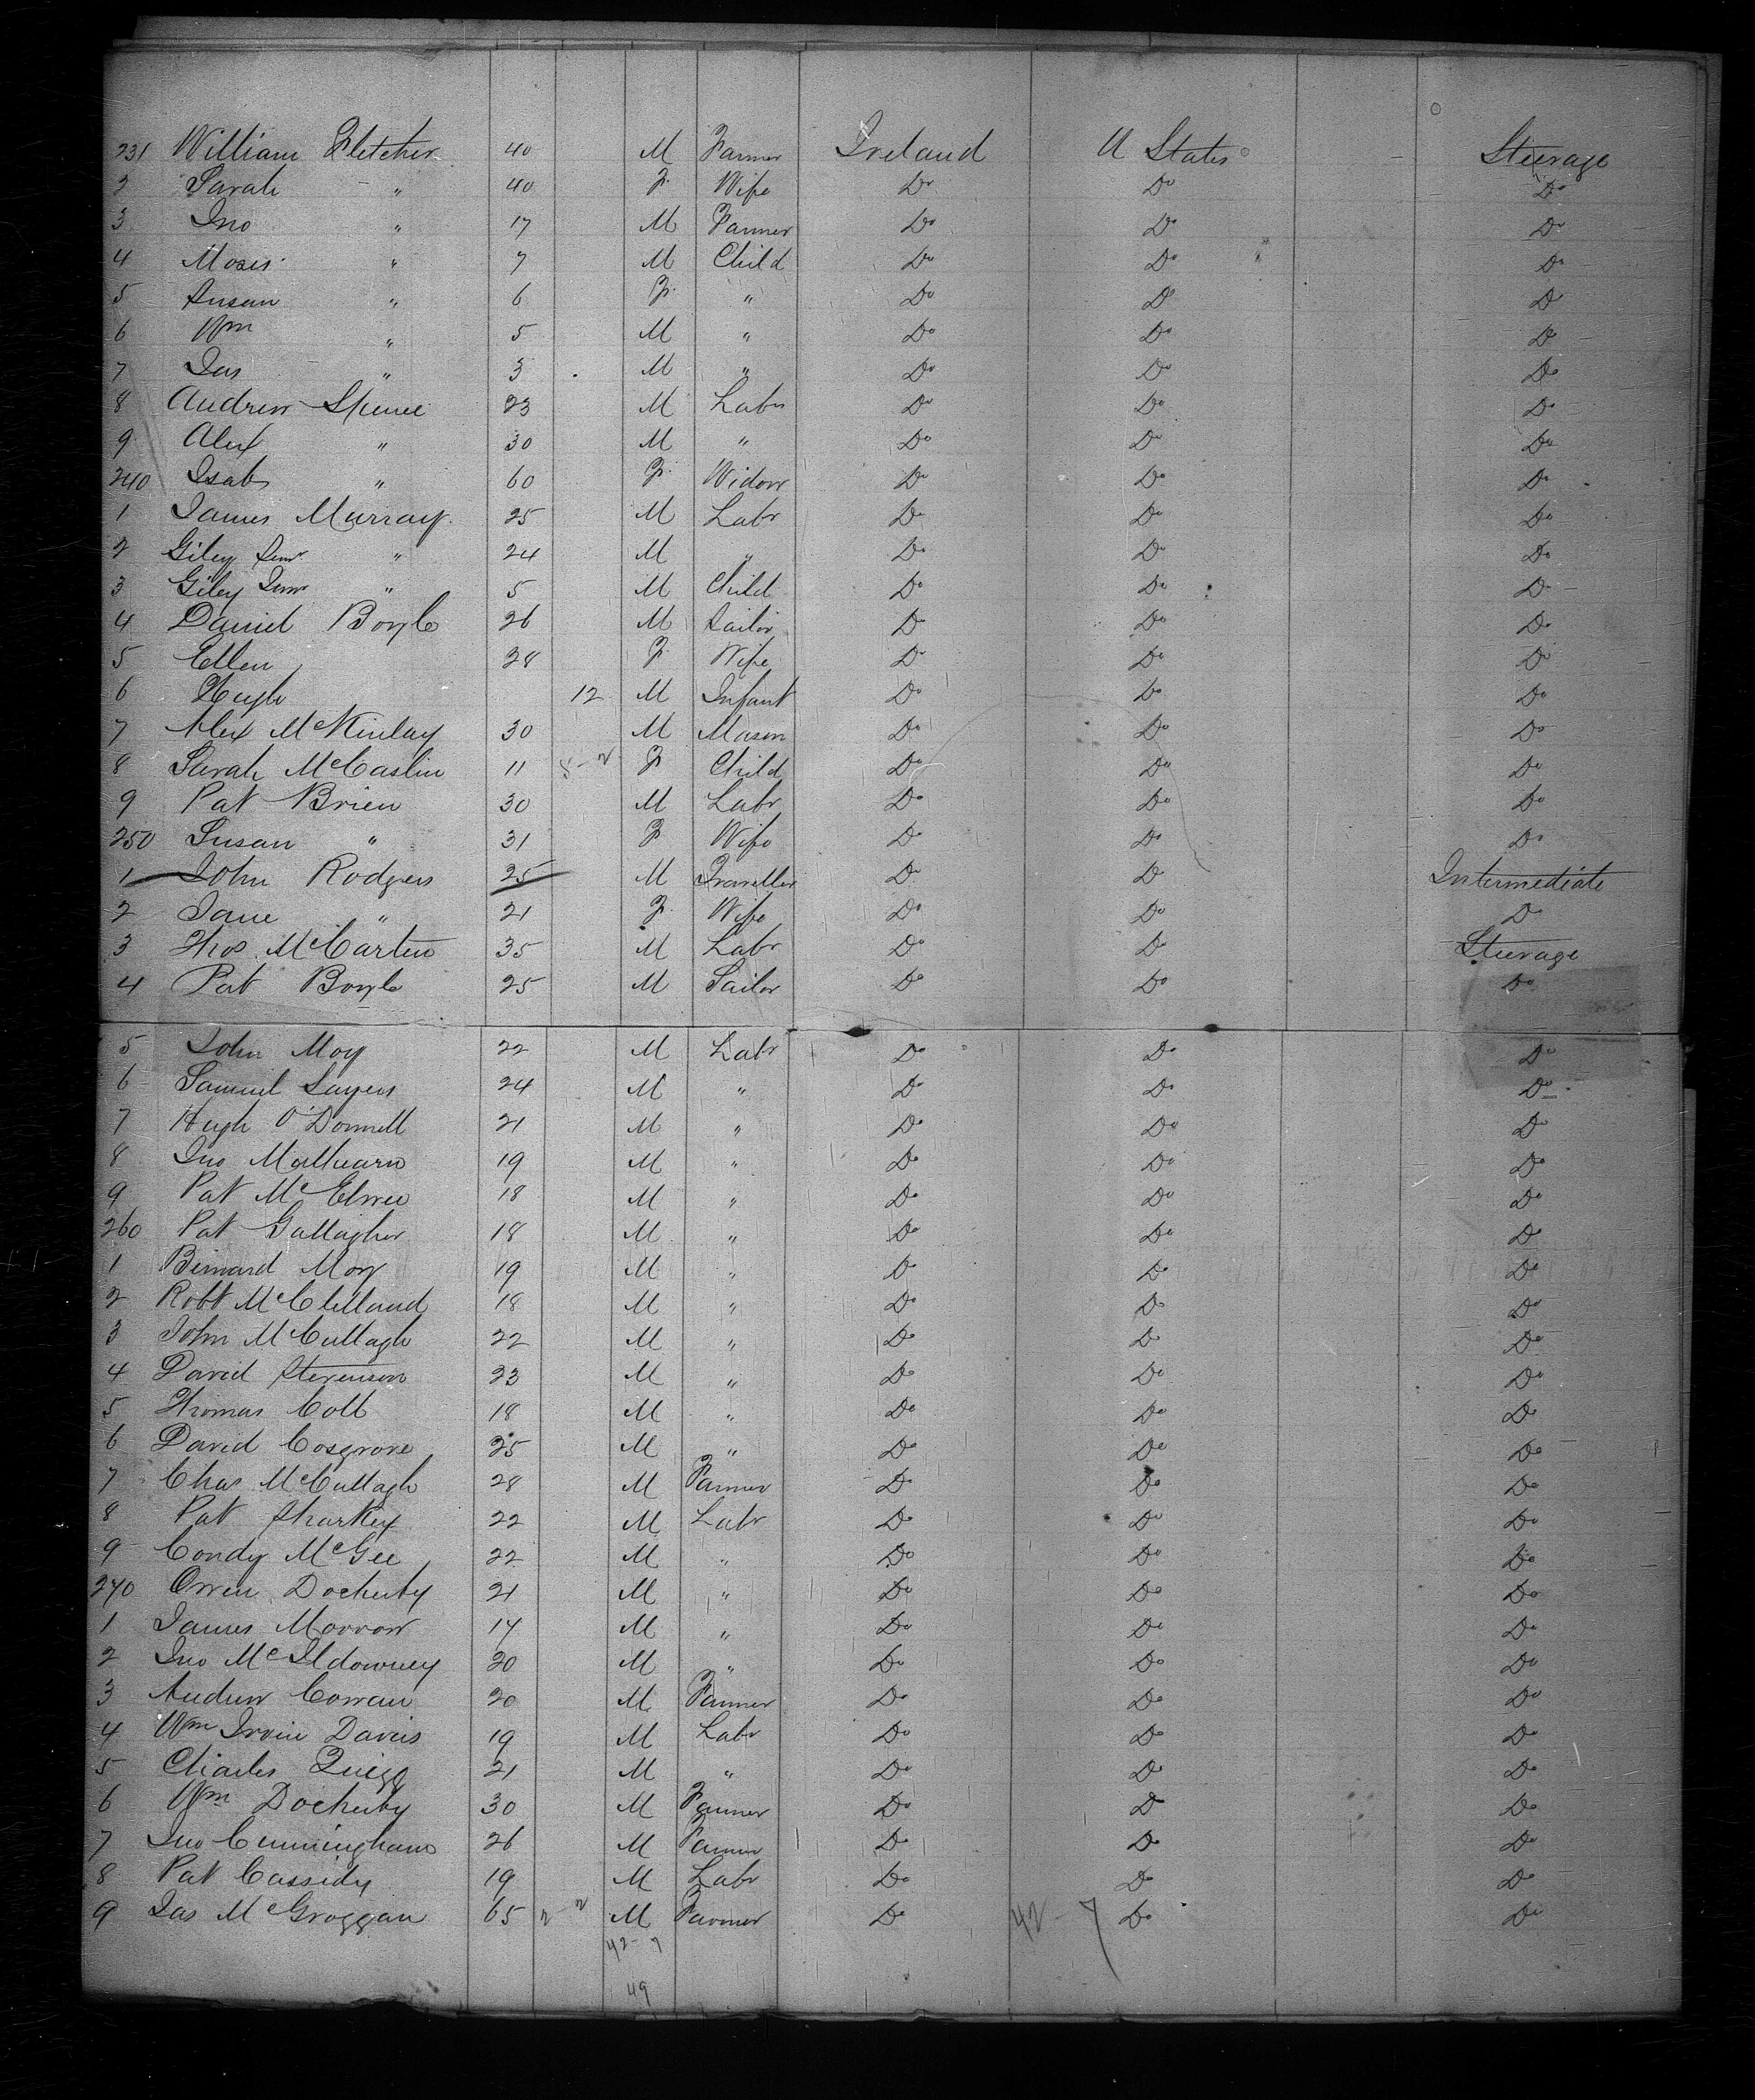 231 William Fletcher 40 M Farmer Ireland U States Steerage
2 Sarah " 40 F Wife Do Do Do
3 Jno " 17 M Farmer Do Do Do
4 Moses " 7 M Child Do Do Do
5 Susan " 6 F " Do Do Do
6 Wm " 5 M " Do Do Do
7 Jas " 3 M " Do Do Do
8 Andrew 23 M Labr Do Do Do
9 Alex " 30 M " Do Do Do
240 Isab " 60 F Widow Do Do Do
1 James Murray 25 M Labr Do Do Do
2 Giley Senr " 24 M " Do Do Do
3 Giley Junr " 5 M Child Do Do Do
4 Daniel Boyle 26 M Sailor Do Do Do
5 Ellen 28 F Wife Do Do Do
6 Hugh 12 M Infant Do Do Do
7 Alex McKinlay 30 M Mason Do Do Do
8 Sarah McCaslin 11 F Child Do Do Do
9 Pat Brien 30 M Labr Do Do Do
250 Susan " 31 F Wife Do Do Do
1 John Rodgers 25 M Traveller Do Do Intermediate
2 Jane " 21 F Wife Do Do Do
3 Thos McCarten 35 M Labr Do Do Steerage
4 Pat Boyle 25 M Sailor Do Do Do
5 John Moy 22 M Labr Do Do Do
6 Samuel Sayers 24 M " Do Do Do
7 Hugh O'Donnell 21 M " Do Do Do
8 Jno 19 M " Do Do Do
9 Pat McElwee 18 M " Do Do Do
260 Pat Gallagher 18 M " Do Do Do
1 Bernard Moy 19 M " Do Do Do
2 Robt McClelland 18 M " Do Do Do
3 John McCullagh 22 M " Do Do Do
4 David Stevenson 23 M " Do Do Do
5 Thomas Coll 18 M " Do Do Do
6 David Cosgrove 25 M " Do Do Do
7 Chas McCullagh 28 M Farmer Do Do Do
8 Pat Sharkey 22 M Labr Do Do Do
9 Condy McGee 22 M " Do Do Do
270 Owen Docherty 21 M " Do Do Do
1 James Morrow 17 M " Do Do Do
2 Jno McIldowney 20 M " Do Do Do
3 Andrew Cowan 20 M Farmer Do Do Do
4 Wm Irvin Davis 19 M Labr Do Do Do
5 Charles Quigg 21 M " Do Do Do
6 Wm Docherty 30 M Farmer Do Do Do
7 Jno Cunningham 26 M Farmer Do Do Do
8 Pat Cassidy 19 M Labr Do Do Do
9 Jas McGroggan 65 M Farmer Do 42 - 7 Do Do
42- 7
49